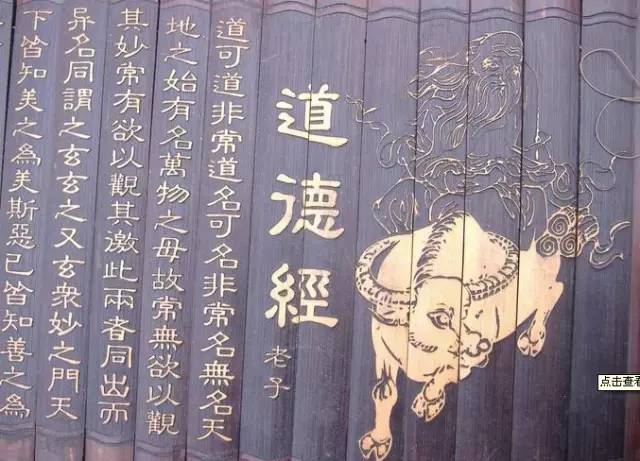 道德經
老子
道可道非常道名可名非常名無名天
地之始有名萬物之母故常無欲以觀
其妙常有欲以觀其邀此兩者同出而
異名同謂之玄玄之又玄衆妙之門天
下皆知美之為美斯惡已皆知善之為
点击查看